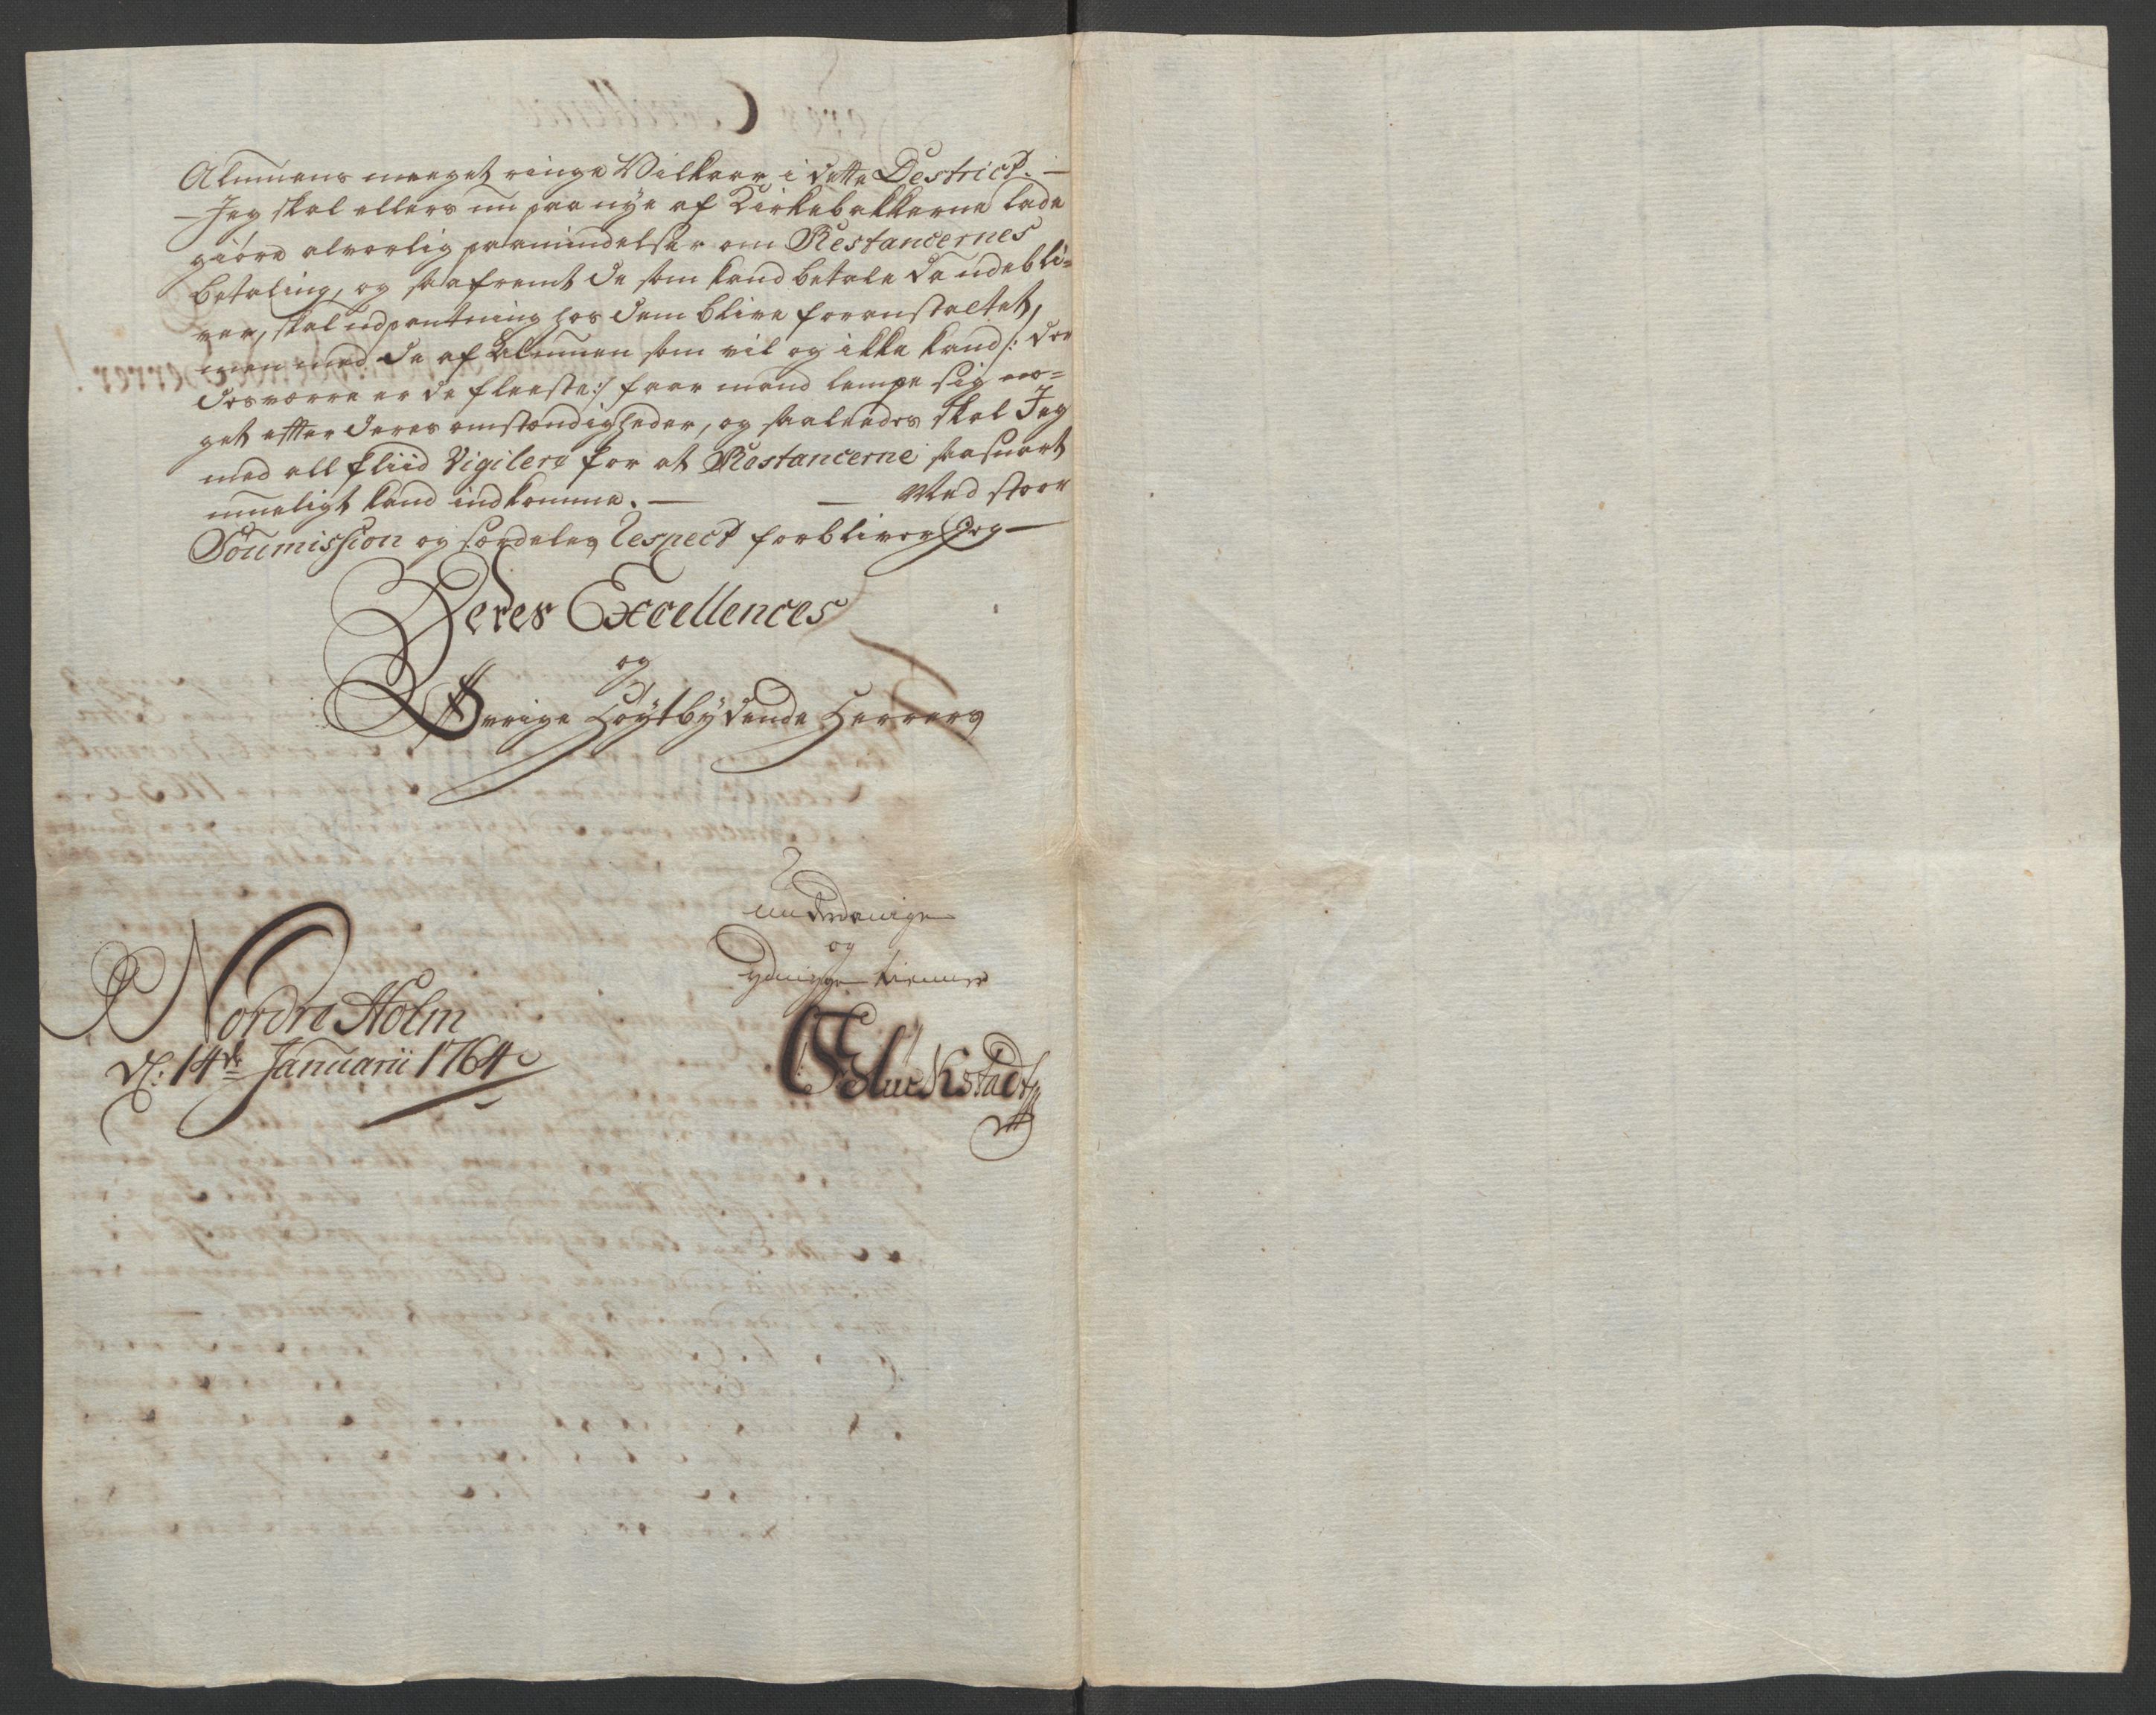 Almuens meeget ringe Vilkaar i dette Destrict. —
— Jeg skal ellers nu paa nye af Kirkebakkerne lade
giöre alvorlig paamindelser om Restancernes
betaling, og saafremt de som kand betale da udebli=
ver, skal udpantning hos dem blive foranstaltet,
men med de af Almuen som vil og ikke kand /: der
desværre er de fleeste :/ faar mand lempe sig no=
get efter deres omstændigheder, og saaleedes skal Jeg
med all fliid Vigilere for at Restancerne saasnart
mueligt kand indkomme. — — Med stoor
Soumission og særdeles Respect forbliver Jeg —
Deres Excellences
og
Øvrige Höÿtbÿdende Herrers
underdanige
og
ydmyge tienner
Nordre Holm
d: 14de Januarii 1764
Glückstadt